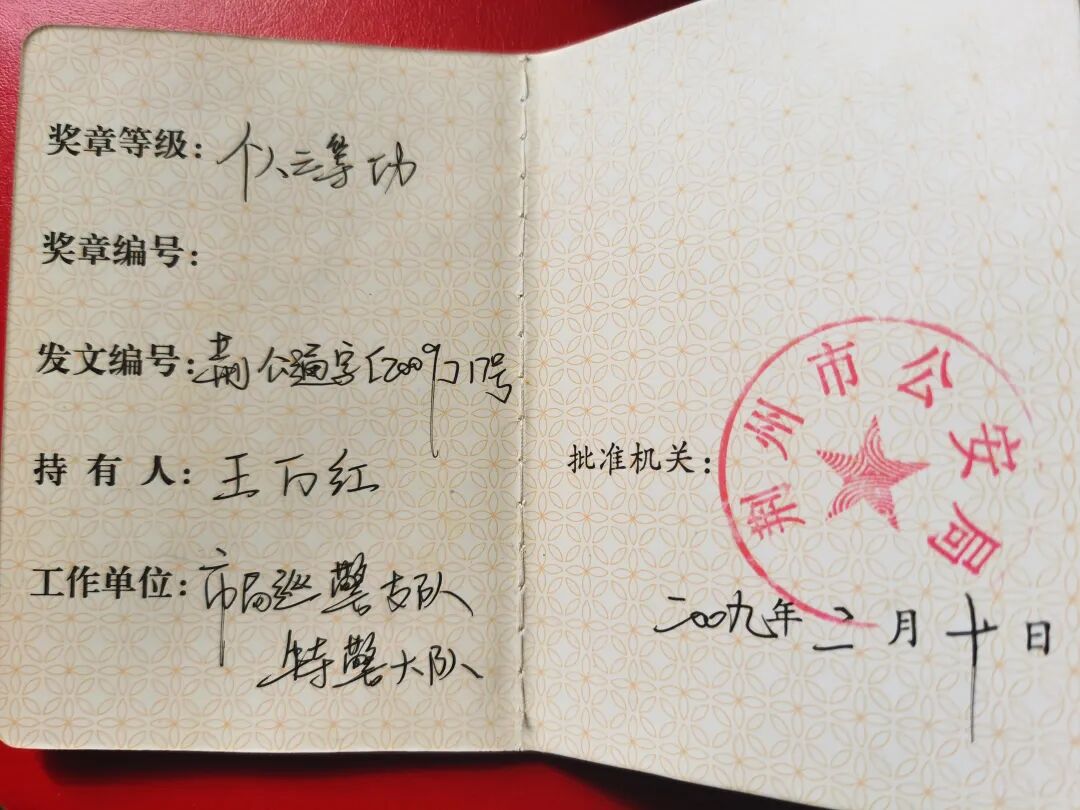 奖章等级：个人三等功
奖章编号：
发文编号：荆公通字〔2009〕17号
持有人：王万红
工作单位：市局巡警支队
特警大队
荆州市公安局
批准机关：
二00九年二月十日